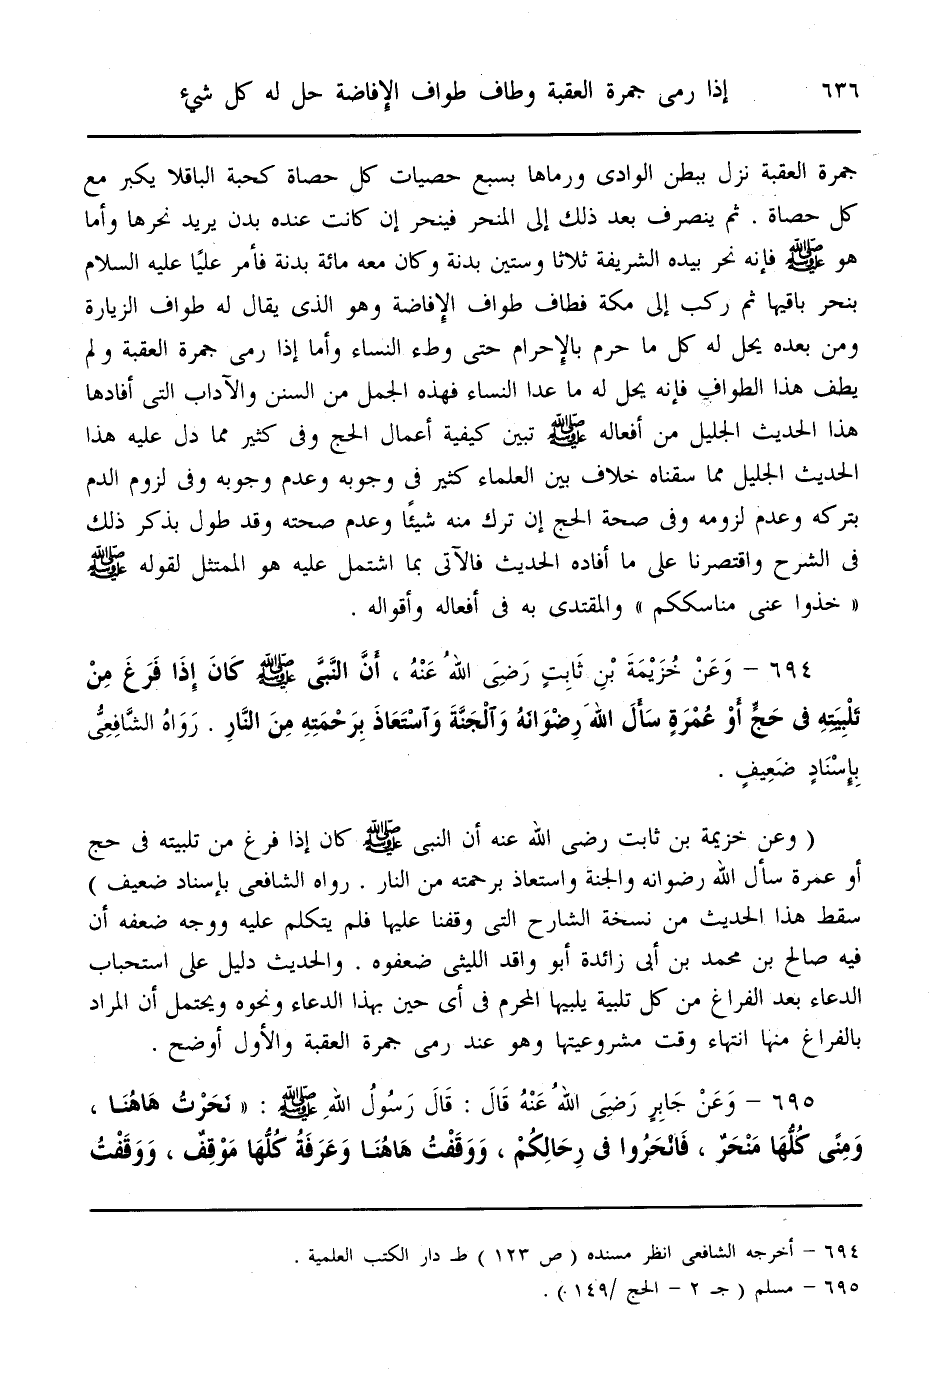 ٦٣٦ إذا رمى جمرة العقبة وطاف طواف الإفاضة حل له كل شيء
جمرة العقبة نزل ببطن الوادى ورماها بسبع حصيات كل حصاة كحبة الباقلا يكبر مع
كل حصاة . ثم ينصرف بعد ذلك إلى المنحر فينحر إن كانت عنده بدن يريد نحرها وأما
هو ﷺ فإنه نحر بيده الشريفة ثلاثا وستين بدنة وكان معه مائة بدنة فأمر عليًا عليه السلام
بنحر باقيها ثم ركب إلى مكة فطاف طواف الإفاضة وهو الذى يقال له طواف الزيارة
ومن بعده يحل له كل ما حرم بالإحرام حتى وطء النساء وأما إذا رمى جمرة العقبة ولم
يطف هذا الطواف فإنه يحل له ما عدا النساء فهذه الجمل من السنن والآداب التى أفادها
هذا الحديث الجليل من أفعاله ﷺ تبين كيفية أعمال الحج وفى كثير مما دل عليه هذا
الحديث الجليل مما سقناه خلاف بين العلماء كثير فى وجوبه وعدم وجوبه وفى لزوم الدم
بتركه وعدم لزومه وفى صحة الحج إن ترك منه شيئًا وعدم صحته وقد طول بذكر ذلك
فى الشرح واقتصرنا على ما أفاده الحديث فالآتى بما اشتمل عليه هو الممتثل لقوله ﷺ
« خذوا عنى مناسككم » والمقتدى به فى أفعاله وأقواله .
٦٩٤ – وَعَنْ خُزَيْمَةَ بْنِ ثَابِتٍ رَضِىَ اللهُ عَنْهُ ، أَنَّ النَّبِىَّ ﷺ كَانَ إِذَا فَرَغَ مِنْ
تَلْبِيَتِهِ فِى حَجٍّ أَوْ عُمْرَةٍ سَأَلَ اللهَ رِضْوَانَهُ وَالْجَنَّةَ وَاسْتَعَاذَ بِرَحْمَتِهِ مِنَ النَّارِ . رَوَاهُ الشَّافِعِىُّ
بِإِسْنَادٍ ضَعِيفٍ .
( وعن خزيمة بن ثابت رضى الله عنه أن النبى ﷺ كان إذا فرغ من تلبيته فى حج
أو عمرة سأل الله رضوانه والجنة واستعاذ برحمته من النار . رواه الشافعى بإسناد ضعيف )
سقط هذا الحديث من نسخة الشارح التى وقفنا عليها فلم يتكلم عليه ووجه ضعفه أن
فيه صالح بن محمد بن أبى زائدة أبو واقد الليثى ضعفوه . والحديث دليل على استحباب
الدعاء بعد الفراغ من كل تلبية يلبيها المحرم فى أى حين بهذا الدعاء ونحوه ويحتمل أن المراد
بالفراغ منها انتهاء وقت مشروعيتها وهو عند رمى جمرة العقبة والأول أوضح .
٦٩٥ – وَعَنْ جَابِرٍ رَضِىَ اللهُ عَنْهُ قَالَ : قَالَ رَسُولُ اللهِ ﷺ : « نَحَرْتُ هَاهُنَا ،
وَمِنًى كُلُّهَا مَنْحَرٌ ، فَانْحَرُوا فِى رِحَالِكُمْ ، وَوَقَفْتُ هَاهُنَا وَعَرَفَةُ كُلُّهَا مَوْقِفٌ ، وَوَقَفْتُ
٦٩٤ – أخرجه الشافعى انظر مسنده ( ص ١٢٣ ) طـ دار الكتب العلمية .
٦٩٥ – مسلم ( جـ ٢ – الحج /١٤٩ ) .